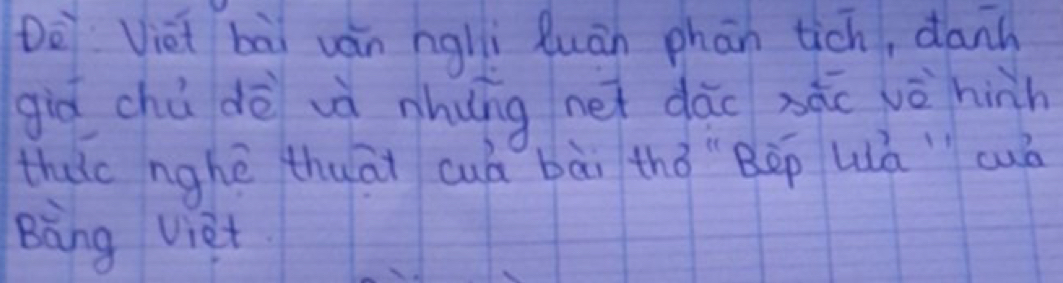 Đề: Viết bài văn nghị luận phân tích, đánh
giá chủ đề và những nét đặc sắc về hình
thức nghệ thuật của bài thơ "Bếp lửa" của
Bằng Việt.